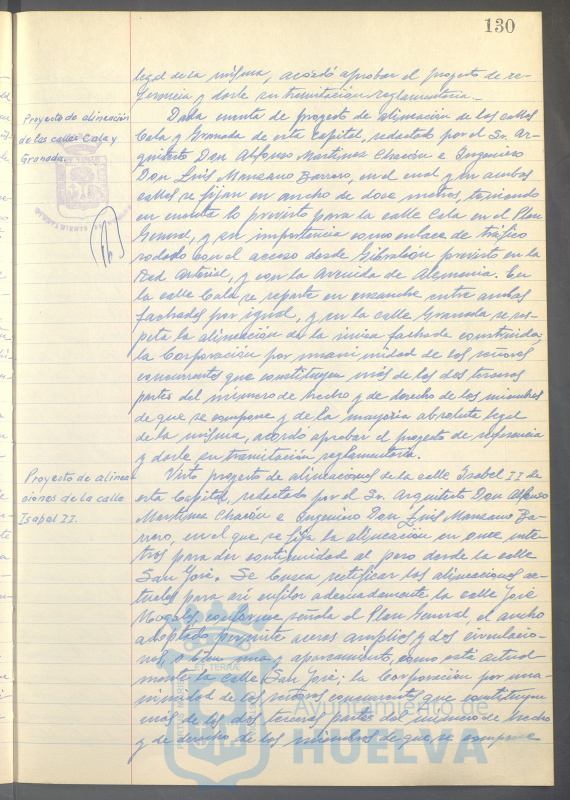 130
legal de la misma, acordó aprobar el proyecto de re-
ferencia y darle su tramitación reglamentaria.—
Proyecto de alineación
de las calles Cala y
Granada.
Dada cuenta de proyecto de alineación de las calles
Cala y Granada de esta Capital, redactado por el Sr. Ar-
quitecto Don Alfonso Martínez Chacón e Ingeniero
Don Luis Manzano Barrero, en el cual y en ambas
calles se fijan en ancho de doce metros, teniendo
en cuenta lo previsto para la calle Cala en el Plan
General, y su importancia como enlace de tráfico
rodado con el acceso desde Gibraleón previsto en la
Red Arterial, y con la Avenida de Alemania. En
la calle Cala se reparte en ensanche entre ambas
fachadas por igual, y en la calle Granada se res-
peta la alineación de la única fachada construida;
la Corporación por unanimidad de los señores
concurrentes que constituyen más de las dos terceras
partes del número de hecho y de derecho de los miembros
de que se compone y de la mayoría absoluta legal
de la misma, acordó aprobar el proyecto de referencia
y darle su tramitación reglamentaria.
Proyecto de alinea
ciones de la calle
Isabel II.
Visto proyecto de alineaciones de la calle Isabel II de
esta Capital, redactado por el Sr. Arquitecto Don Alfonso
Martínez Chacón e Ingeniero Don Luis Manzano Ba-
rrero, en el que se fija la alineación en once me-
tros para dar continuidad al paso desde la calle
San José. Se busca rectificar las alineaciones ac-
tuales para así enfilar adecuadamente la calle José
Nogales, conforme señala el Plan General, el ancho
adoptado permite aceras amplias y dos circulacio-
nes, o bien una y aparcamiento, como está actual
mente la calle San José; la Corporación por una-
nimidad de los señores concurrentes que constituyen
más de las dos terceras partes del número de hecho
y de derecho de los miembros de que se compone
Ayuntamiento de
HUELVA